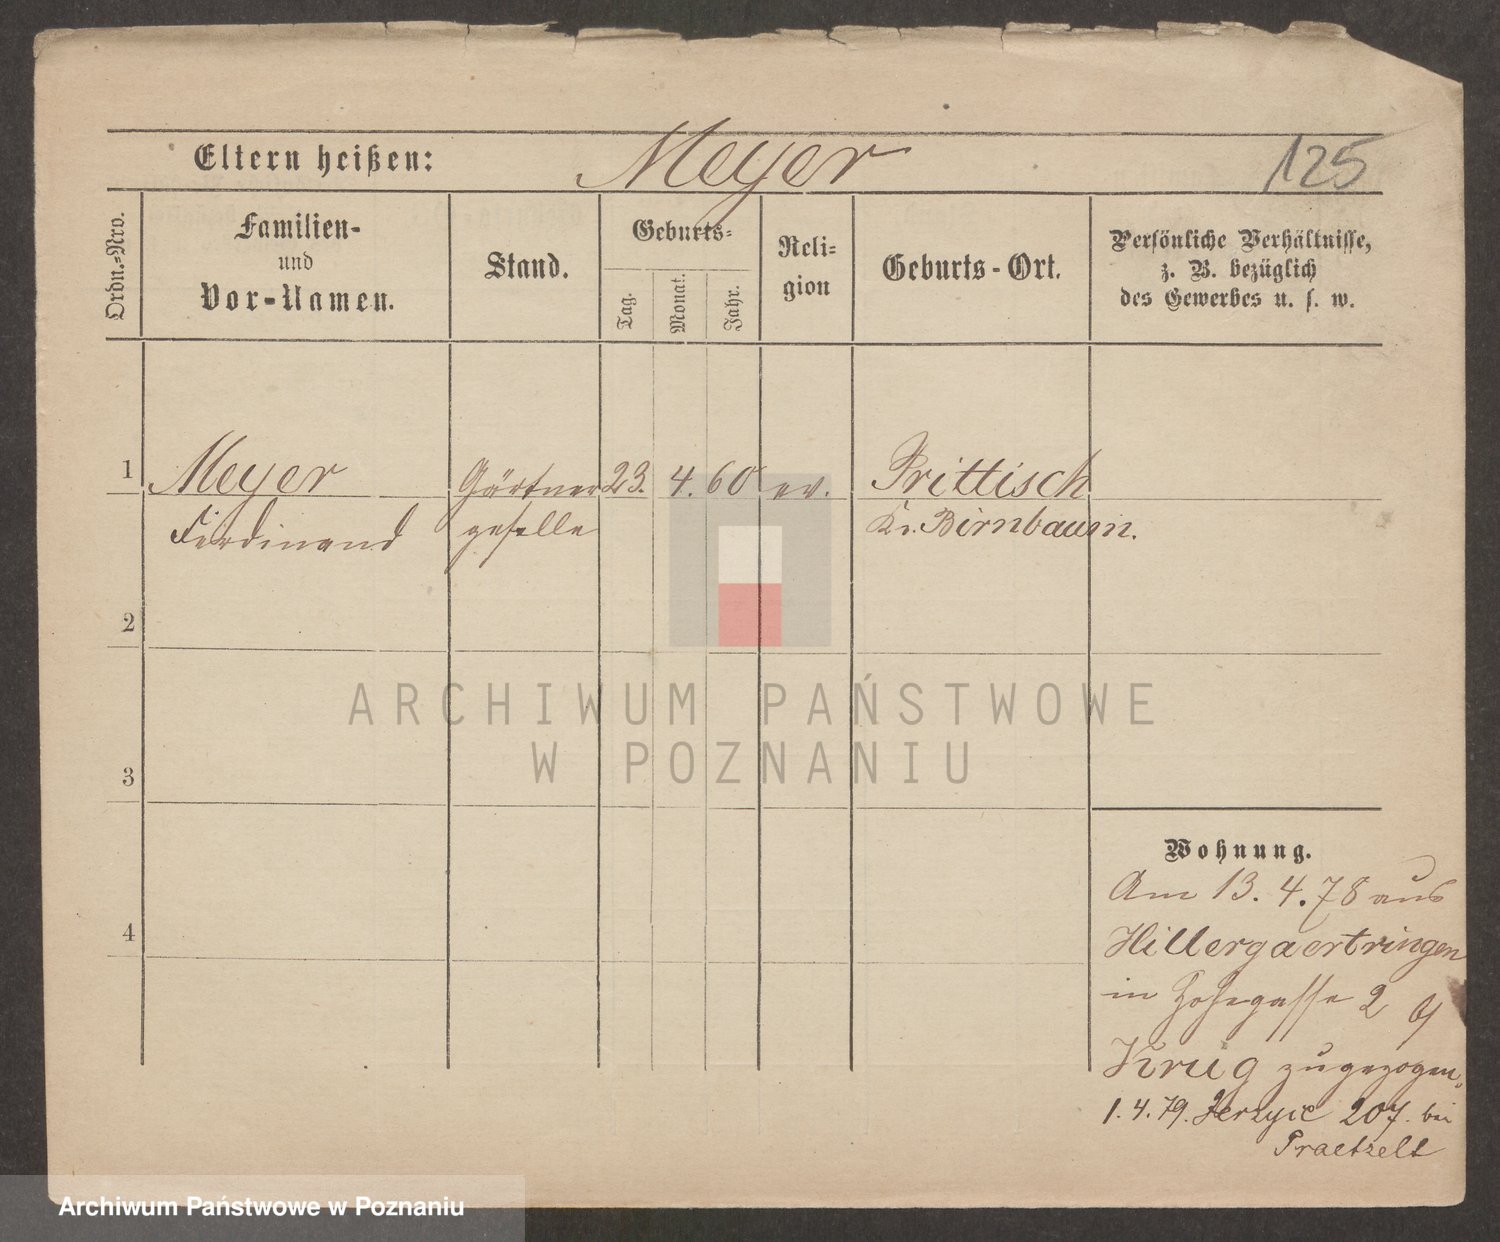 Eltern heißen: Meyer 125
Ordn.-Nro.
Familien-
und
Vor-Namen.
Stand.
Geburts-
Tag.
Monat.
Jahr.
Reli-
gion
Geburts-Ort.
Persönliche Verhältnisse,
z. B. bezüglich
des Gewerbes u. s. w.
1 Meyer Gärtner 23. 4. 60 ev. Prittisch
Ferdinand geselle Kr. Birnbaum.
2
3
4
Wohnung.
Am 13. 4. 78 aus
Hillergaertringen
in Hohegasse 2 b/
Krug zugezogen.
1. 4. 79. Jerzyic 207. bei
Praetzelt
ARCHIWUM PAŃSTWOWE
W POZNANIU
Archiwum Państwowe w Poznaniu